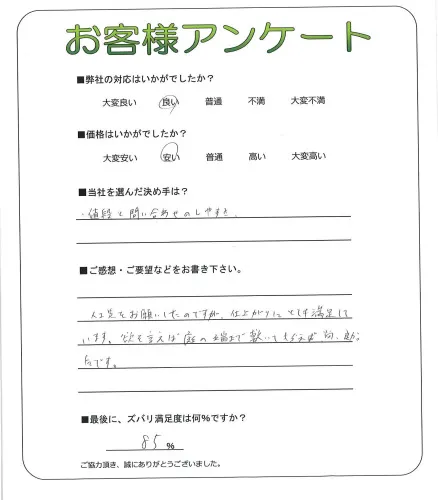 お客様アンケート
■弊社の対応はいかがでしたか?
大変良い 良い 普通 不満 大変不満
■価格はいかがでしたか?
大変安い 安い 普通 高い 大変高い
■当社を選んだ決め手は?
・値段と問い合わせのしやすさ、
■ご感想・ご要望などをお書き下さい。
人工芝をお願いしたのですが、仕上がりにとても満足して
います。欲を言えば庭の端まで敷いて
たです。
■最後に、ズバリ満足度は何%ですか?
85%
ご協力頂き、誠にありがとうございました。